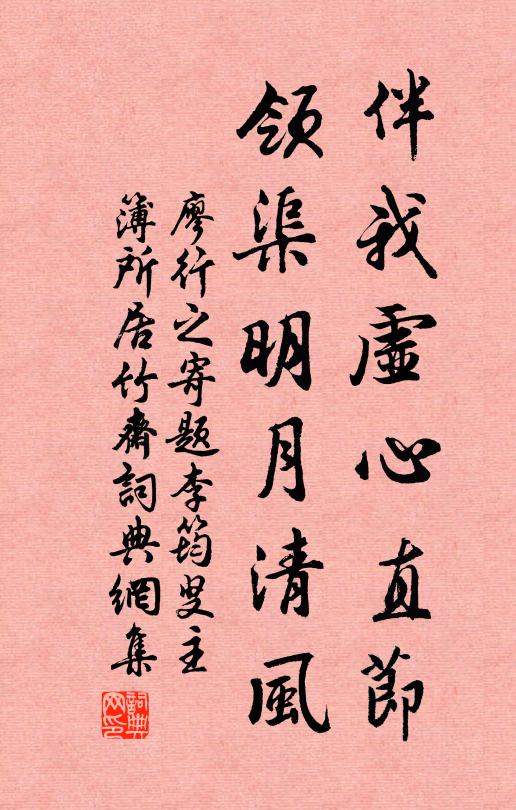 伴我虛心直節
領渠明月清風
廖行之寄題李筠叟主
簿所居竹齋詞典網集
詞典
网印